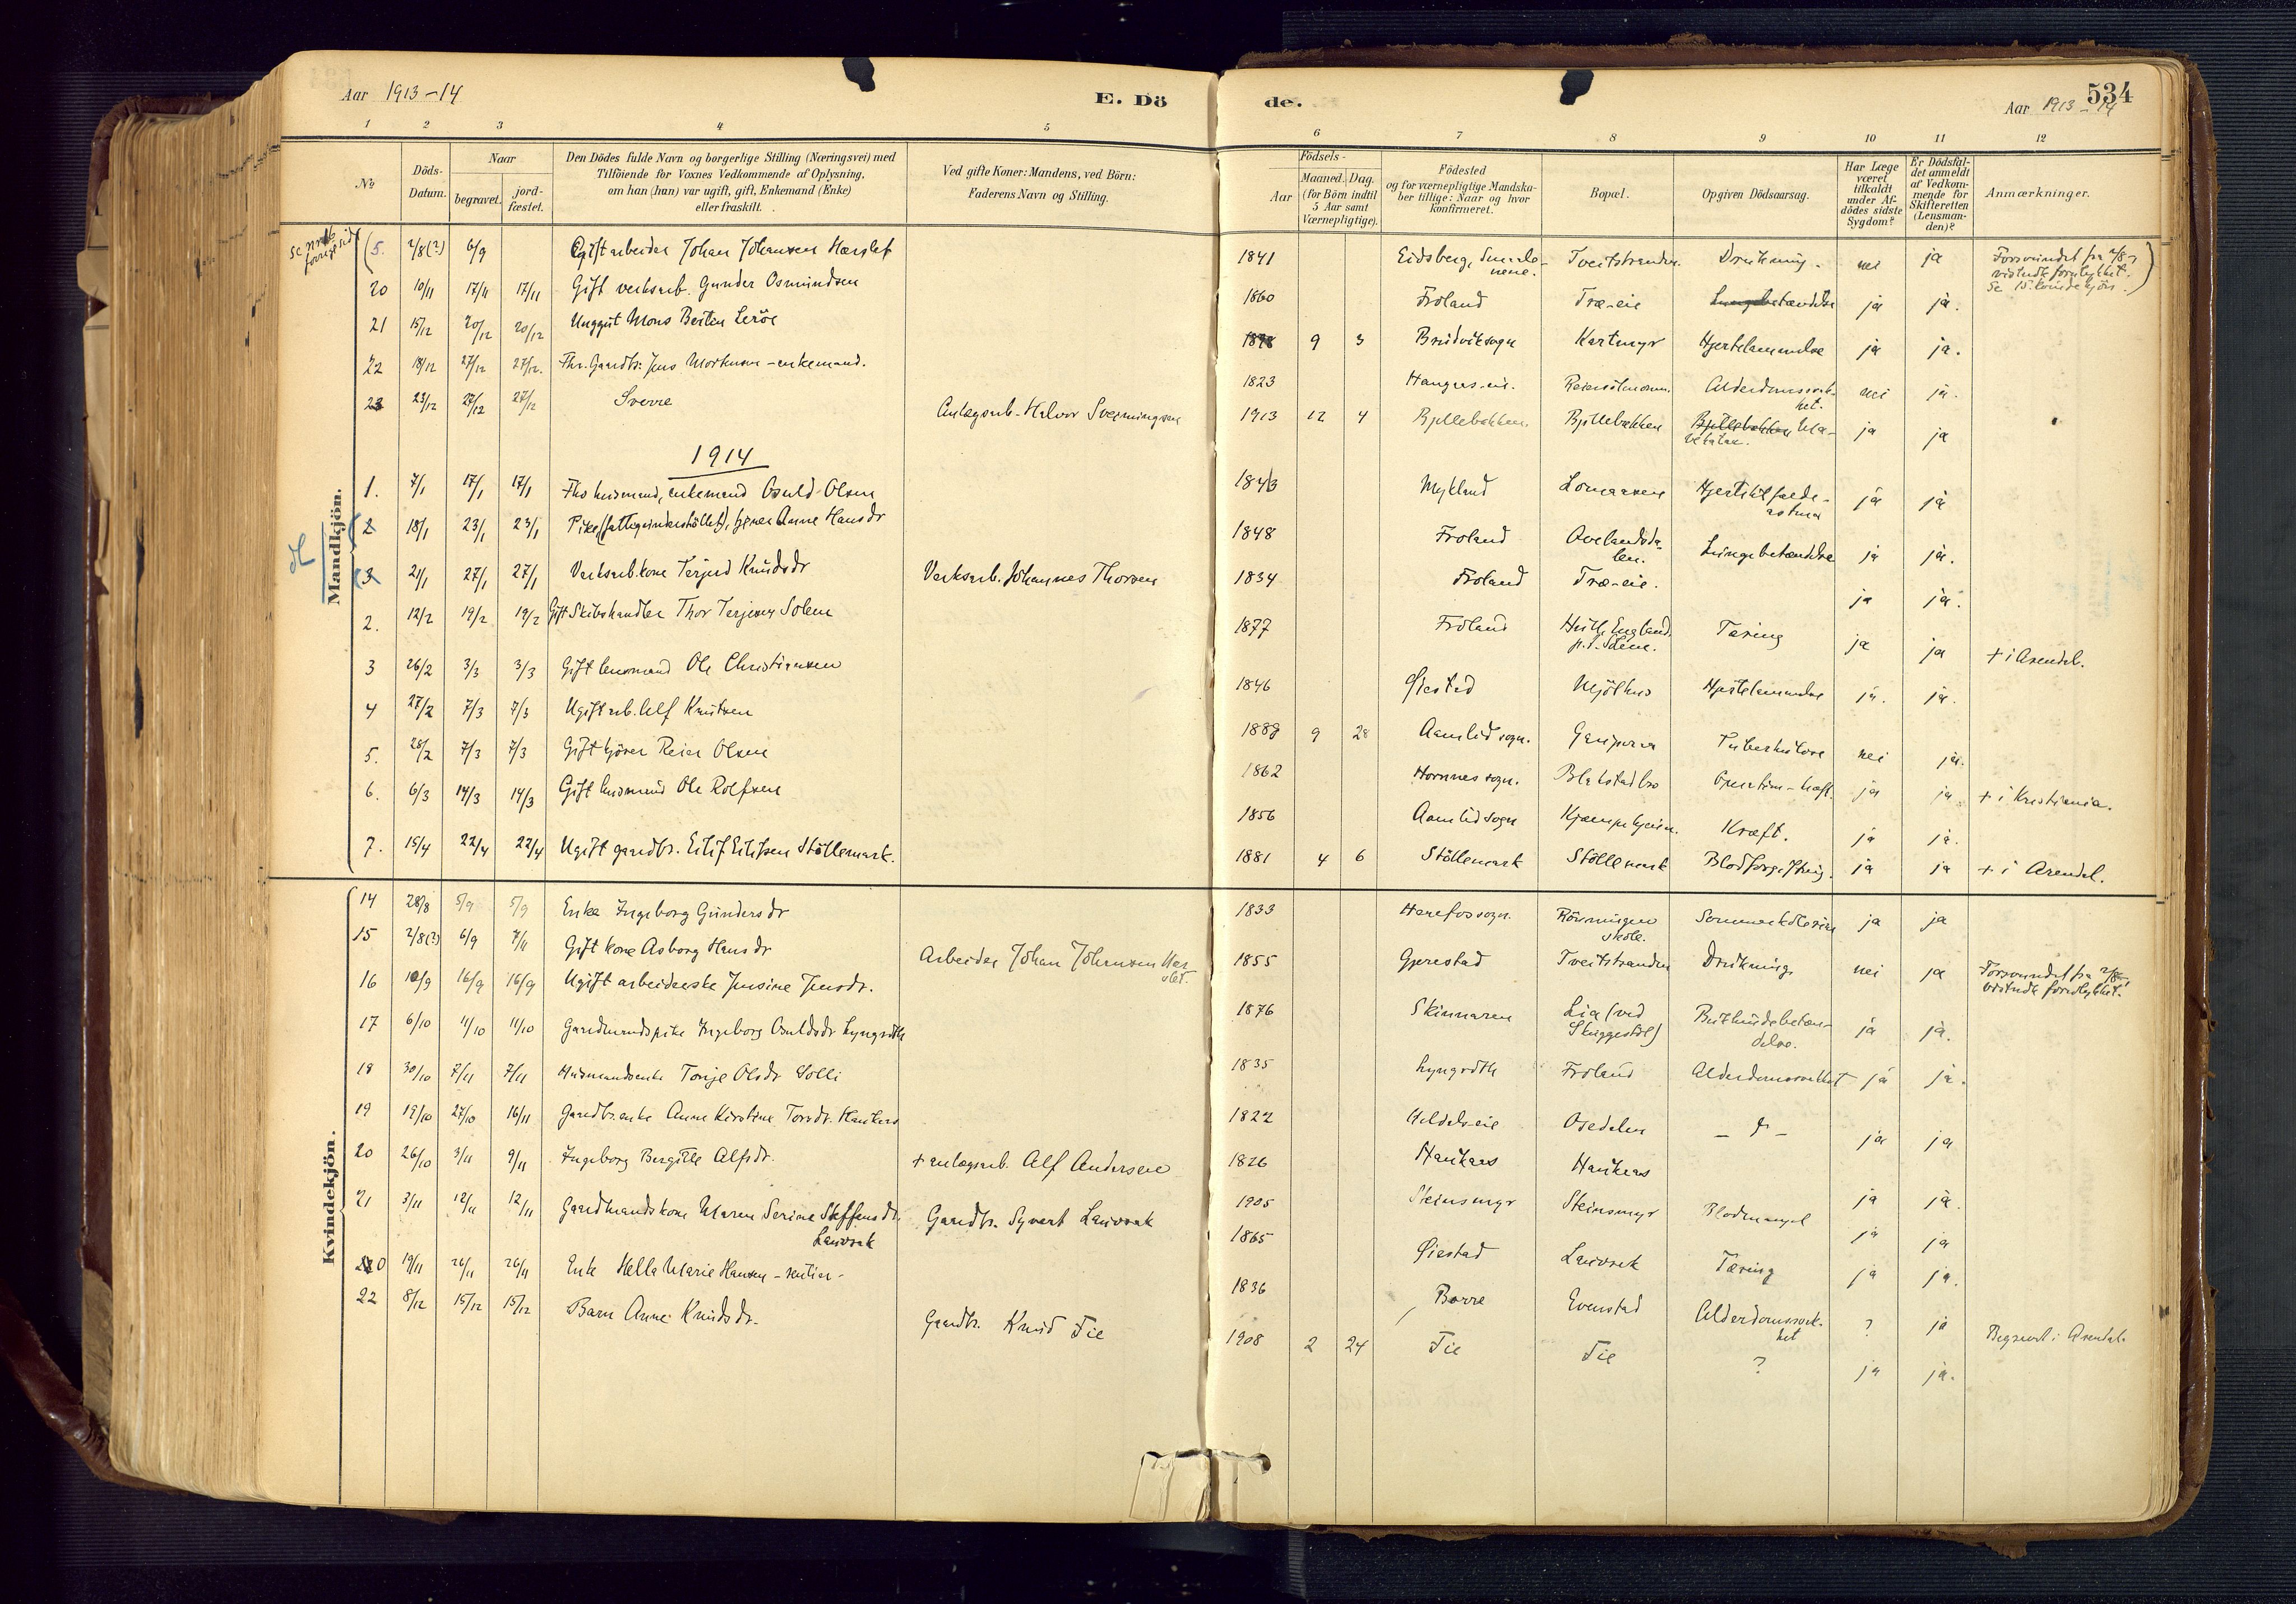 Aar 1913-14
E. Dö
de.
534
Aar 1913-14
1 2 3 4 5 6 7 8 9 10 11 12
No
Döds-Datum.
Naar
begravet.
jord-fæstet.
Den Dödes fulde Navn og borgerlige Stilling (Næringsvei) med
Tilföiende for Voxnes Vedkommende af Oplysning,
om han (hun) var ugift, gift, Enkemand (Enke)
eller fraskilt.
Ved gifte Koner: Mandens, ved Börn:
Faderens Navn og Stilling.
Födsels-
Aar
Maaned. Dag.
(for Börn indtil
5 Aar samt
Værnepligtige).
Födested
og for værnepligtige Mandska-
ber tillige: Naar og hvor
konfirmeret.
Bopæl.
Opgiven Dödsaarsag.
Har Læge
været
tilkaldt
under Af-
dödes sidste
Sygdom?
Er Dödsfal-
det anmeldt
af Vedkom-
mende for
Skifteretten
(Lensman-
den)?
Anmærkninger.
Mandkjön.
(5. 2/8(?) 6/9 Gift arbeider Johan Johansen Hærslet 1841 Eidsberg, Smaale-
nene. Tveitstranden. Drukning. nei ja Forsvundet fra 2/8,
20 10/11 17/11 17/11 Gift verksarb. Gunder Osmundsen 1860 Froland Træ-eie Lungebetændelse ja ja.
21 15/12 20/12 20/12 Unggut Mons Berten Leröe 9 3 Bruvik sogn Kartmyr Hjertelammelse ja ja.
22 18/12 27/12 27/12. Fhv. Gaardbr. Jens Mortensen - enkemand. 1823 nei ja.
23 23/12 27/12 27/12 Sverre Anlægsarb. Halvor Sveinungsen 1913 12 4 Bjellebækken Bjellebækken ja ja
1914
1. 7/1 17/1 17/1 Fhv husmand, enkemand Osuld Olsen Mykland ja ja
2 18/1 23/1 23/1 Anne Hansdr 1848 Froland Lungebetændelse ja ja.
3 21/1 27/1 27/1 Verksarb.kone Terjerd Knudsdr Verksarb. Johannes Thorsen 1834 Froland Træ-eie. ja ja.
2. 12/2 19/2 19/2 Gift Skibshandler Thor Terjesen Solem 1877 Froland Hull, England, Tæring ja ja + i Arendal.
3 26/2 3/3 3/3 Gift husmand Ole Christiansen 1846 Øiestad Mjölhus Hjertelammelse ja. ja.
4 27/2 7/3 7/3 Ugift arb. Alf Knutsen 1888 9 28 Aamlid sogn. Tuberkulose nei ja.
5. 28/2 7/3 7/3 Gift kjörer Reier Olsen 1862 Hornnes sogn. Blakstadbro Operation - kræft. ja ja + i Kristiania.
6. 6/3 14/3 14/3 Gift husmand Ole Rolfsen 1856 Aamlid sogn Kræft. ja ja.
7. 15/4 22/4 22/4 Ugift gaardbr. Eilif Eilifsen Stöllemark. 1881 4 6 Stöllemark Stöllemark Blodforgiftning. ja ja + i Arendal.
Kvindekjön.
14 28/8 5/9 5/9 Enke Ingeborg Gundersdr 1833 Herefos sogn. ja ja
15 2/8(?) 6/9 7/11 Gift kone Asborg Hansdr Arbeider Johan Johansen Hær-
slet. 1855 Gjerestad Tveitstranden Drukning nei ja Forsvundet fra 2/8,
16 10/9 16/9 16/9 Ugift arbeiderske Jensine Jensdr. 1876 Skinnaren Lia (ved
Skuggestöl) Bukhindebetæn-
delse. ja ja.
17 6/10 11/10 11/10 Gaardmandspike Ingeborg Osuldsdr Lyngroth 1835 Lyngroth Froland Alderdomssvakhet ja ja.
18 30/10 7/11 7/11 Husmandsenke Tonje Olsdr Solli 1822 Osedalen ja ja
19 19/10 27/10 16/11 Gaardbr.enke Anne Kirstine Torsdr. Haukeas 1826 Haukeas Haukeas ja ja.
20 26/10 3/11 9/11 Ingeborg Bergitte Alfsdr. + anlægsarb. Alf Andersen 1905 Steinsmyr Steinsmyr Blodmangel ja ja
21 3/11 12/11 12/11 Gaardmandskone Maren Serine Steffensdr.
Lauvrak Gaardbr. Syvert Lauvrak 1865 Øiestad Lauvrak Tæring ja ja.
19/11 26/11 26/11 Enke Hella Marie Hansen - rentier - 1836 Borre Evenstad Alderdomssvak-
het ? ja Begravet i Arendal.
22 8/12 15/12 15/12 Barn Anne Knudsdr. Gaardbr. Knud Fie 1908 2 24 Fie Fie ? ja ja.